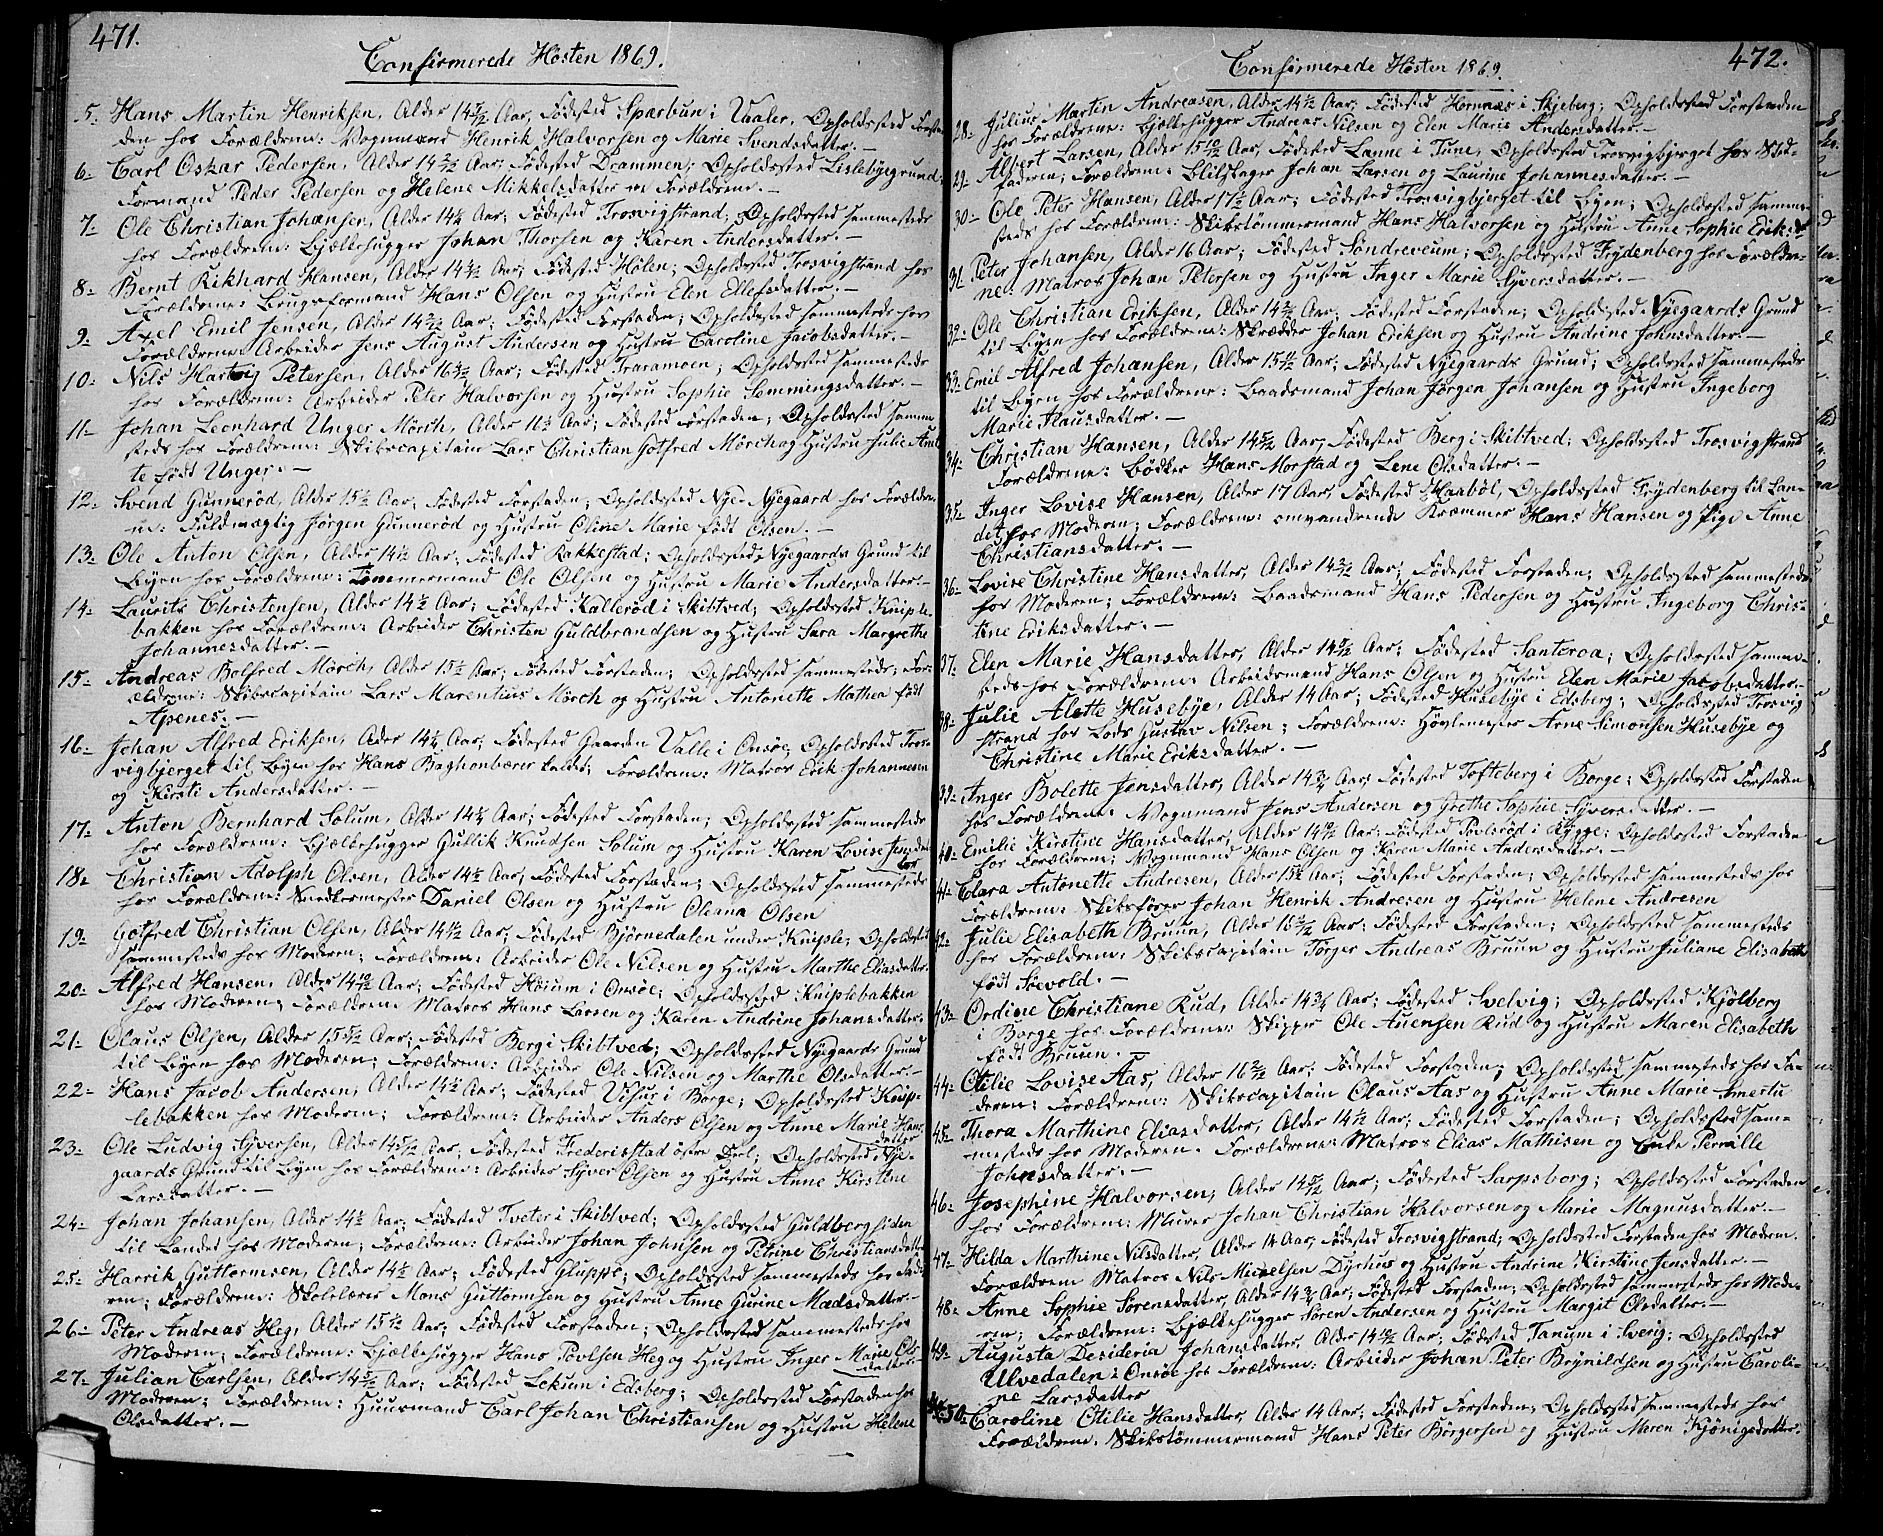 471.
Confirmerede Hösten 1869.
5. Hans Martin Henriksen, Alder 14 7/12 Aar, Födested Spærbun i Vaaler, Opholdssted Forsta-
den hos Forældrene: Vognmand Henrik Halvorsen og Marie Svendsdatter. —
6. Carl Oskar Pedersen, Alder 14 Aar; Födested Drammen; Opholdssted Lislebÿegrund;
Formand Peder Pedersen og Helene Mikkelsdatter Forældrene. —
7. Ole Christian Johansen, Alder 14 Aar; Födested Trosvigstrand; Opholdssted sammesteds
hos Forældrene: Bjælkehugger Johan Thorsen og Karen Andersdatter. —
8. Bernt Rikhard Hansen, Alder 14 Aar; Födested Hölen; Opholdssted Trosvigstrand hos
Forældrene: Brugsformand Hans Olsen og Hustru Elen Ellefsdatter. —
9. Axel Emil Jensen, Alder 14 Aar; Födested Forstaden; Opholdssted sammesteds hos
Forældrene: Arbeider Jens August Andersen og Hustru Caroline Jacobsdatter. —
10. Nils Hartvig Petersen, Alder 16 Aar; Födested Traramoen; Opholdssted sammesteds
hos Forældrene: Arbeider Peter Halvorsen og Hustru Sophie Semmingsdatter. —
11. Johan Leonhard Unger Mörch, Alder Aar; Födested Forstaden; Opholdssted samme-
steds hos Forældrene: Skibscapitain Lars Christian Gotfred Mörch og Hustru Julie Anet-
te født Unger. —
12. Svend Gunneröd, Alder 15 Aar; Födested Forstaden; Opholdssted Nye Nyegaard hos Forældre-
ne: Fuldmægtig Jörgen Gunneröd og Hustru Oline Marie født Olsen. —
13. Ole Anton Olsen, Alder 14 Aar; Födested Rakkestad; Opholdssted Nyegaards Grund til
Byen hos Forældrene: Tömmermand Ole Olsen og Hustru Marie Andersdatter. —
14. Laurits Christensen, Alder 14 Aar; Födested Kalleröd i Skibtved; Opholdssted Kniple-
bakken hos Forældrene: Arbeider Christen Guldbrandsen og Hustru Sara Margrethe
Johannesdatter. —
15. Andreas Bolfred Mörch, Alder 15 Aar; Födested Forstaden; Opholdssted sammesteds; For-
ældrene: Skibscapitain Lars Marentius Mörch og Hustru Antonette Mathea født
Apenes. —
16. Johan Alfred Eriksen, Alder 14 Aar; Födested Gaarden Valle i Onsöe; Opholdssted Tros-
vigbjerget til Byen hos Hans Baghonbærer; Forældrene: Matros Erik Johannesen
og Kirsti Andersdatter. —
17. Anton Bernhard Solum, Alder 14 Aar; Födested Forstaden; Opholdssted sammesteds
hos Forældrene: Bjælkehugger Gullik Knudsen Solum og Hustru Karen Lovise Jensdat-
ter
18. Christian Adolph Olsen, Alder 14 Aar; Födested Forstaden; Opholdssted sammesteds
hos Forældrene: Snedkermester Daniel Olsen og Hustru Oleana Olsen
19. Gotfred Christian Olsen, Alder 14 Aar; Födested Björnedalen under Kniple; Opholdssted
sammesteds hos Moderen; Forældrene: Arbeider Ole Nilsen og Hustru Marthe Eliasdatter.
20. Alfred Hansen, Alder 14 10/12 Aar; Födested Hörum i Onsöe; Opholdssted Kniplebakken
hos Moderen; Forældrene Matros Hans Larsen og Karen Andrine Johansdatter. —
21. Claus Olsen, Alder 15 5/12 Aar; Födested Berg i Skibtved; Opholdssted Nyegaards Grund
til Byen hos Moderen; Forældrene: Arbeider Ole Nilsen og Marthe Olsdatter. —
22. Hans Jacob Andersen, Alder 14 Aar; Födested Visur i Borge; Opholdssted Knip-
lebakken hos Moderen; Forældrene: Arbeider Anders Olsen og Anne Marie Hans-
datter
23. Ole Ludvig Syversen, Alder 14 5/12 Aar; Födested Frederiksstad östre Deel; Opholdssted Nye-
gaards Grund til Byen hos Forældrene: Arbeider Syver Olsen og Hustru Anne Kirstine
Larsdatter. —
24. Johan Johansen, Alder 14 Aar; Födested Tveter i Skibtved; Opholdssted Guldbergsiden
til Landet hos Moderen; Forældrene: Arbeider Johan Johnsen og Petrine Christiansdatter
25. Harrik Guttormsen, Alder 14 Aar; Födested Gluppe; Opholdssted sammesteds hos Fade-
ren; Forældrene: Skolelærer Mons Guttormsen og Hustru Anne Gurine Madsdatter. —
26. Peter Andreas Heg, Alder 15 Aar; Födested Forstaden; Opholdssted sammesteds hos
Moderen; Forældrene: Bjælkehugger Hans Povlsen Heg og Hustru Inger Marie Ols-
datter.
27. Julian Carlsen, Alder 14 Aar; Födested Leksum i Edsberg; Opholdssted Forstaden hos
Moderen; Forældrene: Huusmand Carl Johan Christiansen og Hustru Helene
Olsdatter. —
472.
Confirmerede Hösten 1869.
28. Julius Martin Andreasen, Alder 14 1/2 Aar; Födested Hornnæs i Skjeberg; Opholdssted Forstaden
hos Forældrene: Bjælkehugger Andreas Nilsen og Elen Marie Andersdatter. —
29. Albert Larsen, Alder 15 10/12 Aar, Födested Lanne i Tune, Opholdssted Trosvigbjerget hos Sted-
faderen; Forældrene: Blikslager Johan Larsen og Laurine Johannesdatter. —
30. Ole Peter Hansen, Alder 17 1/2 Aar; Födested Trosvigbjerget til Byen; Opholdssted samme-
steds hos Forældrene: Skibstömmermand Hans Halvorsen og Hustru Anne Sophie Eriksdr
31. Peter Johansen, Alder 16 Aar; Födested Söndreveum; Opholdssted Frydenberg hos Forældre-
ne: Matros Johan Petersen og Hustru Inger Marie Syversdatter. —
32. Ole Christian Eriksen, Alder 14 Aar; Födested Forstaden; Opholdssted Nyegaards Grund
til Byen hos Forældrene: Skrædder Johan Eriksen og Hustru Andrine Johnsdatter. —
33. Emil Alfred Johansen, Alder 15 11/12 Aar; Födested Nyegaards Grund; Opholdssted sammesteds
til Byen hos Forældrene: Baadsmand Johan Jörgen Johansen og Hustru Ingeborg
Marie Klausdatter. —
34. Christian Hansen, Alder 14 5/12 Aar; Födested Berg i Skibtved; Opholdssted Trosvigstrand
Forældrene: Bödker Hans Morstad og Lene Olsdatter. —
35. Inger Lovise Hansen, Alder 17 Aar, Födested Haaböl, Opholdssted Frydenberg til Lan-
det hos Moderen; Forældrene: omvandrende Kræmmer Hans Hansen og Pige Anne
Christiansdatter. —
36. Lovise Christine Hansdatter, Alder 14 Aar; Födested Forstaden; Opholdssted sammesteds
hos Moderen; Forældrene: Baadsmand Hans Pedersen og Hustru Ingeborg Chris-
tine Eriksdatter. —
37. Elen Marie Hansdatter, Alder 14 Aar; Födested Santoroa; Opholdssted samme-
steds hos Forældrene: Arbeidsmand Hans Olsen og Hustru Elen Marie Jacobsdatter. —
38. Julie Alette Husebye, Alder 14 Aar; Födested Husebye i Edsberg; Opholdssted Trosvig
strand hos Lods Gustav Nilsen; Forældrene: Hövlemester Arne Simonsen Husebye og
Christine Marie Eriksdatter. —
39. Anger Bolette Jensdatter, Alder 14 3/4 Aar; Födested Tofteberg i Borge; Opholdssted Forstaden
hos Forældrene: Vognmand Jens Andersen og Grethe Sophie Syversdatter. —
40. Emilie Kirstine Hansdatter, Alder 14 10/12 Aar; Födested Povlsröd i Rygge; Opholdssted Forstaden
hos Forældrene; Vognmand Hans Olsen og Karen Marie Andersdatter. —
41. Clara Antonette Andresen, Alder 15 Aar; Födested Forstaden; Opholdssted sammesteds hos
Forældrene: Skibsförer Johan Henrik Andresen og Hustru Helene Andresen
42. Julie Elisabeth Bruun, Alder 15 Aar; Födested Forstaden; Opholdssted sammesteds
hos Forældrene: Skibscapitain Törger Andreas Bruun og Hustru Juliane Elisabeth
født Soevold.
43. Ordine Christiane Rud, Alder 14 3/4 Aar; Födested Svelvig; Opholdssted Kjölberg
i Borge hos Forældrene: Skipper Ole Auensen Rud og Hustru Maren Elisabeth
født Bruun. —
44. Otilie Lovise Aas, Alder 16 2/12 Aar; Födested Forstaden; Opholdssted sammesteds hos Fa-
deren; Forældrene: Skibscapitain Claus Aas og Hustru Anne Marie Smertu
45. Thora Marthine Eliasdatter, Alder 14 Aar; Födested Forstaden; Opholdssted sam-
mesteds hos Moderen. Forældrene: Matros Elias Mathisen og Enke Pernille
Johnsdatter. —
46. Josephine Halvorsen; Alder 14 5/12 Aar; Födested Sarpsborg; Opholdssted Forstaden
hos Forældrene: Murer Johan Christian Halvorsen og Marie Magnusdatter. —
47. Hilda Marthine Nilsdatter, Alder 14 Aar, Födested Trosvigstrand; Opholdssted Forstaden hos Moderen.
Forældrene Matros Nils Mikelsen Dyrhus og Hustru Andrine Kirstine Jensdatter. —
48. Anne Sophie Sörensdatter, Alder 14 3/4 Aar; Födested Forstaden; Opholdssted sammesteds hos Mode-
ren; Forældrene: Bjælkehugger Sören Andersen og Hustru Margit Olsdatter. —
49. Augusta Desideria Johansdatter, Alder 14 10/12 Aar; Födested Tanum i Sverig; Opholdssted
Ulvedalen i Onsöe hos Forældrene: Arbeider Johan Peter Brynildsen og Hustru Caroli-
ne Larsdatter
50. Caroline Otilie Hansdatter, Alder 14 Aar; Födested Forstaden; Opholdssted sammesteds hos
Forældrene. Skibstömmermand Hans Peter Börgersen og Hustru Maren Kjönigsdatter.